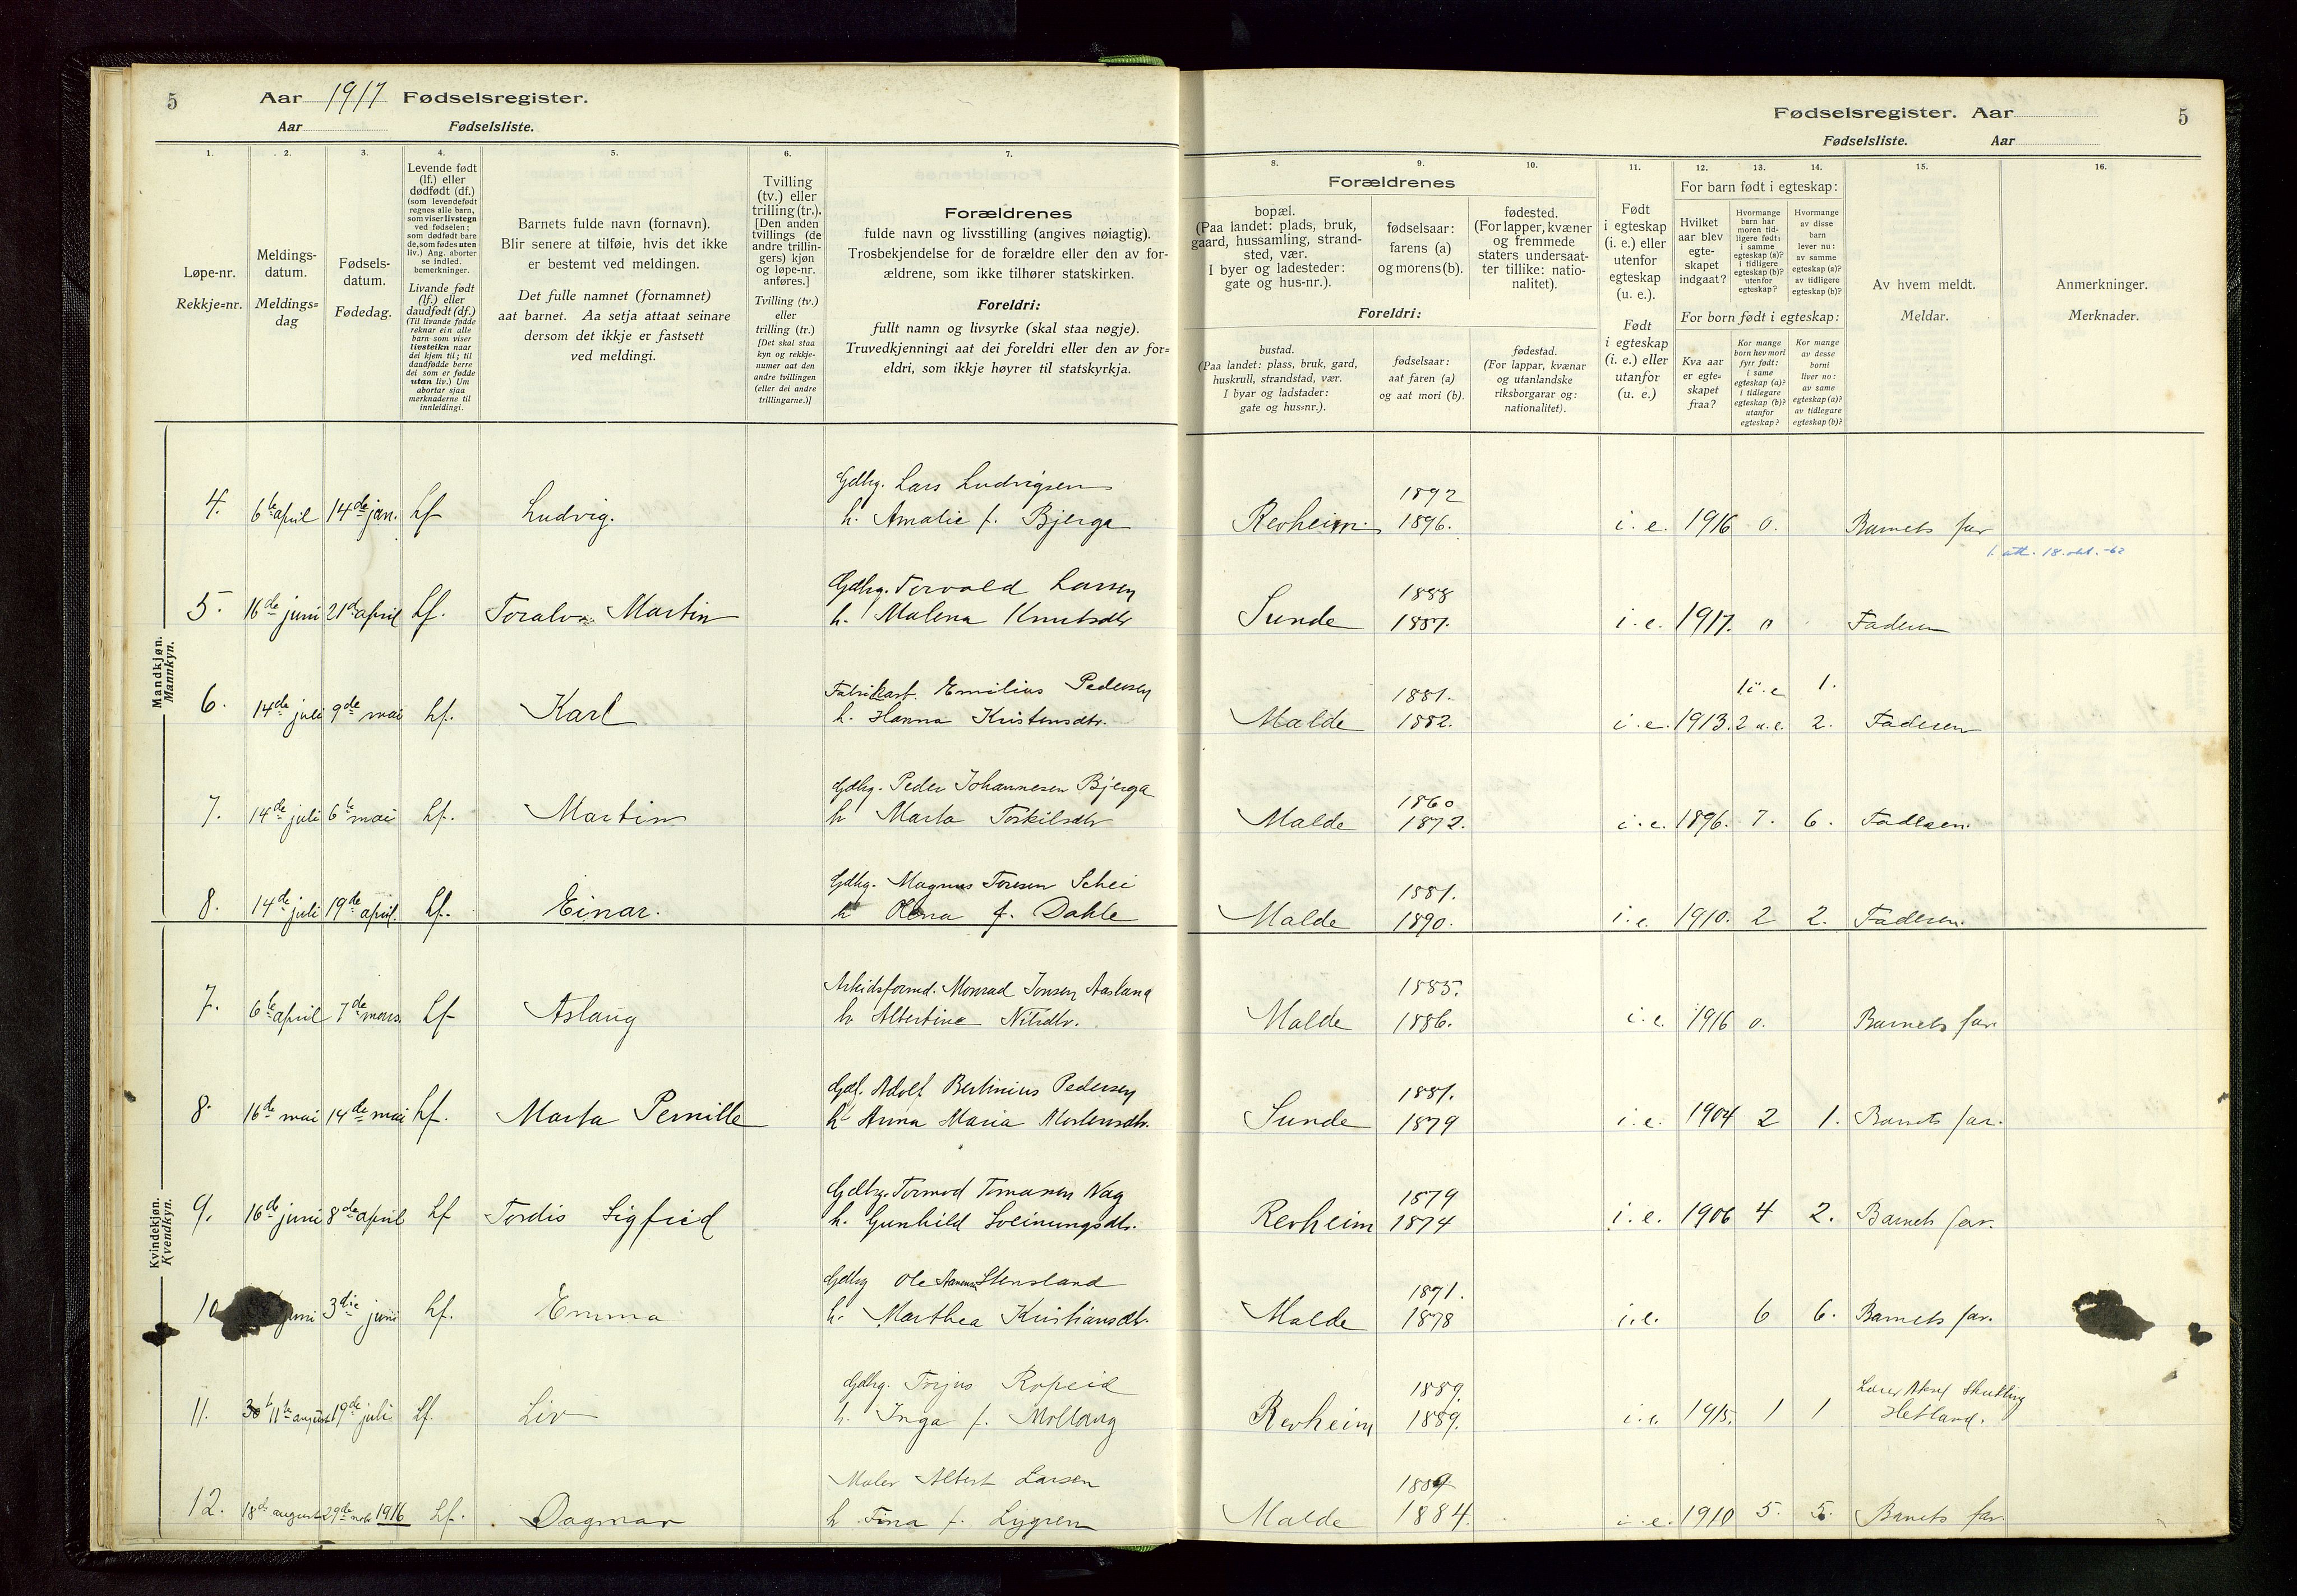 5 Aar 1917 Fødselsregister.
Aar Fødselsliste.
1.
Løpe-nr.
Rekkje=nr.
2.
Meldings-
datum.
Meldings=
dag
3.
Fødsels-
datum.
Fødedag.
4.
Levende født
(lf.) eller
dødfødt (df.)
(som levendefødt
regnes alle barn,
som viser livstegn
ved fødselen;
som dødfødt bare
de, som fødes uten
liv.) Ang. aborter
se indled.
bemerkninger.
Livande født
(lf.) eller
daudfødt (df.)
(Til livande fødde
reknar ein alle
barn som viser
livsteikn naar
dei kjem til; til
daudfødde berre
dei som er fødde
utan liv.) Um
abortar sjaa
merknaderne til
innleidingi.
5.
Barnets fulde navn (fornavn).
Blir senere at tilføie, hvis det ikke
er bestemt ved meldingen.
Det fulle namnet (fornamnet)
aat barnet. Aa setja attaat seinare
dersom det ikkje er fastsett
ved meldingi.
6.
Tvilling
(tv.) eller
trilling (tr.).
[Den anden
tvillings (de
andre trillin-
gers) kjøn
og løpe-nr.
anføres.]
Tvilling (tv.)
eller
trilling (tr.)
[Det skal staa
kyn og rekkje-
numer aat den
andre tvillingen
(eller dei andre
trillingarne.)]
7.
Forældrenes
fulde navn og livsstilling (angives nøiagtig).
Trosbekjendelse for de forældre eller den av for-
ældrene, som ikke tilhører statskirken.
Foreldri:
fullt namn og livsyrke (skal staa nøgje).
Truvedkjenningi aat dei foreldri eller den av for=
eldri, som ikkje høyrer til statskyrkja.
Fødselsregister. Aar 5
Fødselsliste. Aar
8.
9.
10.
Forældrenes
bopæl.
(Paa landet: plads, bruk,
gaard, hussamling, strand-
sted, vær.
I byer og ladesteder:
gate og hus-nr.).
fødselsaar:
farens (a)
og morens (b).
fødested.
(For lapper, kvæner
og fremmede
staters undersaat-
ter tillike: natio-
nalitet).
Foreldri:
bustad.
(Paa landet: plass, bruk, gard,
huskrull, strandstad, vær.
I byar og ladstader:
gate og hus=nr.).
fødselsaar:
aat faren (a)
og aat mori (b).
fødestad.
(For lappar, kvænar
og utanlandske
riksborgarar og:
nationalitet).
11.
Født
i egteskap
(i. e.) eller
utenfor
egteskap
(u. e.).
Født
i egteskap
(i. e.) eller
utanfor
(u. e.)
12.
13.
14.
For barn født i egteskap:
Hvilket
aar blev
egte-
skapet
indgaat?
Hvormange
barn har
moren tid-
ligere født:
i samme
egteskap (a)?
i tidligere
egteskap (b)?
utenfor
egteskap?
Hvormange
av disse
barn
lever nu:
av samme
egteskap (a)?
av tidligere
egteskap (b)?
For born født i egteskap:
Kva aar
er egte=
skapet
fraa?
Kor mange
born hev mori
fyrr født:
i same
egteskap (a)?
i tidlegare
egteskap (b)?
utanfor
egteskap?
Kor mange
av desse
borni
liver no:
av same
egteskap (a)?
av tidlegare
egteskap (b)?
15.
Av hvem meldt.
Meldar.
16.
Anmerkninger.
Merknader.
Mandkjøn.
Mannkyn.
Gdbrg. Lars Ludvigsen 1892
4. 6te april 14de jan. Lf Ludvig. h. Amalie f. Bjerga Revheim. 1896. i. e. 1916 o. Barnets far
18. okt. -62
Gdbrg. Torvald Larsen 1888
5. 16de juni 21de april Lf. Toralv Martin h. Malena Knutsdtr Sunde 1887. i. e. 1917. o Faderen
Fabrikarb. Emilius Pedersen 1881. 1 i. e 1.
6. 14de juli 9de mai Lf. Karl h. Hanna Kristensdtr. Malde 1882. i. e. 1913. 2 u. e. 2. Faderen
Gdbrg. Peder Johannesen Bjerga 1860
7. 14de juli 6te mai Lf. Martin h Marta Torkilsdtr Malde 1872. i. e. 1896. 7. 6. Faderen.
Gdbrg. Magnus Toresen Schei 1881.
8. 14de juli 19de april. Lf. Einar. h Olena f. Dahle Malde 1890. i. e. 1910. 2 2. Faderen.
Kvindekjøn.
Kvendkyn.
Arbeidsformd. Monrad Jonsen Aasland 1885.
7. 6te april 7de mars. Lf Aslaug h. Albertine Nilsdtr. Malde 1886. i. e. 1916 o. Barnets far.
Gdf. Adolf Bertinius Pedersen 1881.
8. 16de mai 14de mai Lf. Marta Pernille h. Anna Maria Mortensdtr. Sunde 1879 i. e. 1904 2 1. Barnets far.
Gdbrg. Tormod Tomasen Nag 1879
9. 16de juni 8de april Lf Tordis Sigfrid h. Gunhild Sveinungsdtr. Revheim 1874 i. e. 1906 4 2. Barnets far.
Gdbrg Ole Stensland 1871.
10 juni 3die juni Lf. Emma h. Marthea Kristiansdtr. Malde 1878 i. e. 6 6. Barnets far.
Gdbrg. Torjus Ropeid 1889. Lærer Skutling
11. 11te august 19de juli Lf. Liv h. Inga f. Mollaug Revheim 1889. i. e. 1915. 1 1 Hetland.
Maler Albert Larsen 1889
12. 18de august 29de nov. 1916 Lf. Dagmar h Tina f. Lygren Malde 1884. i. e. 1910 5. 5. Barnets far.